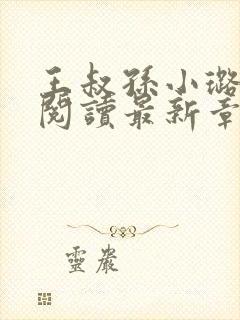 王叔孫小璐
閱讀最新章
靈嚴